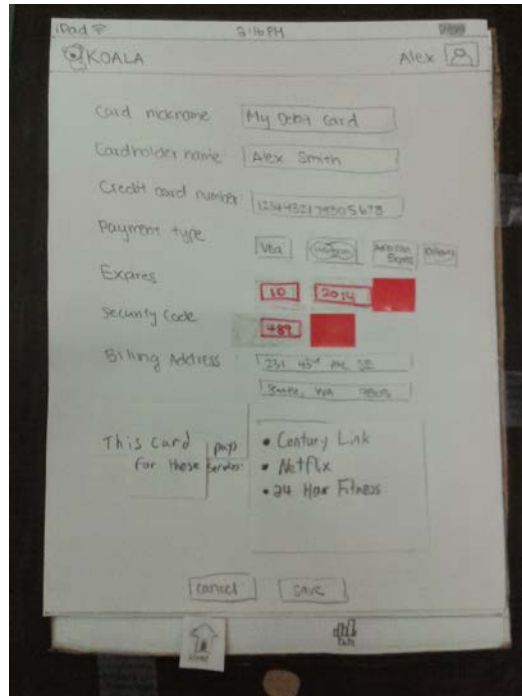 iPad 2:16 PM
KOALA Alex
Card nickname My Debit Card
Cardholder name Alex Smith
Credit card number
Payment type Visa American Express
Expires 10 2014
Security Code 489
Billing Address 231 45th Ave SE
Seattle, WA
This card pays • Century Link
for these services: • Netflix
• 24 Hour Fitness
cancel save
HOME